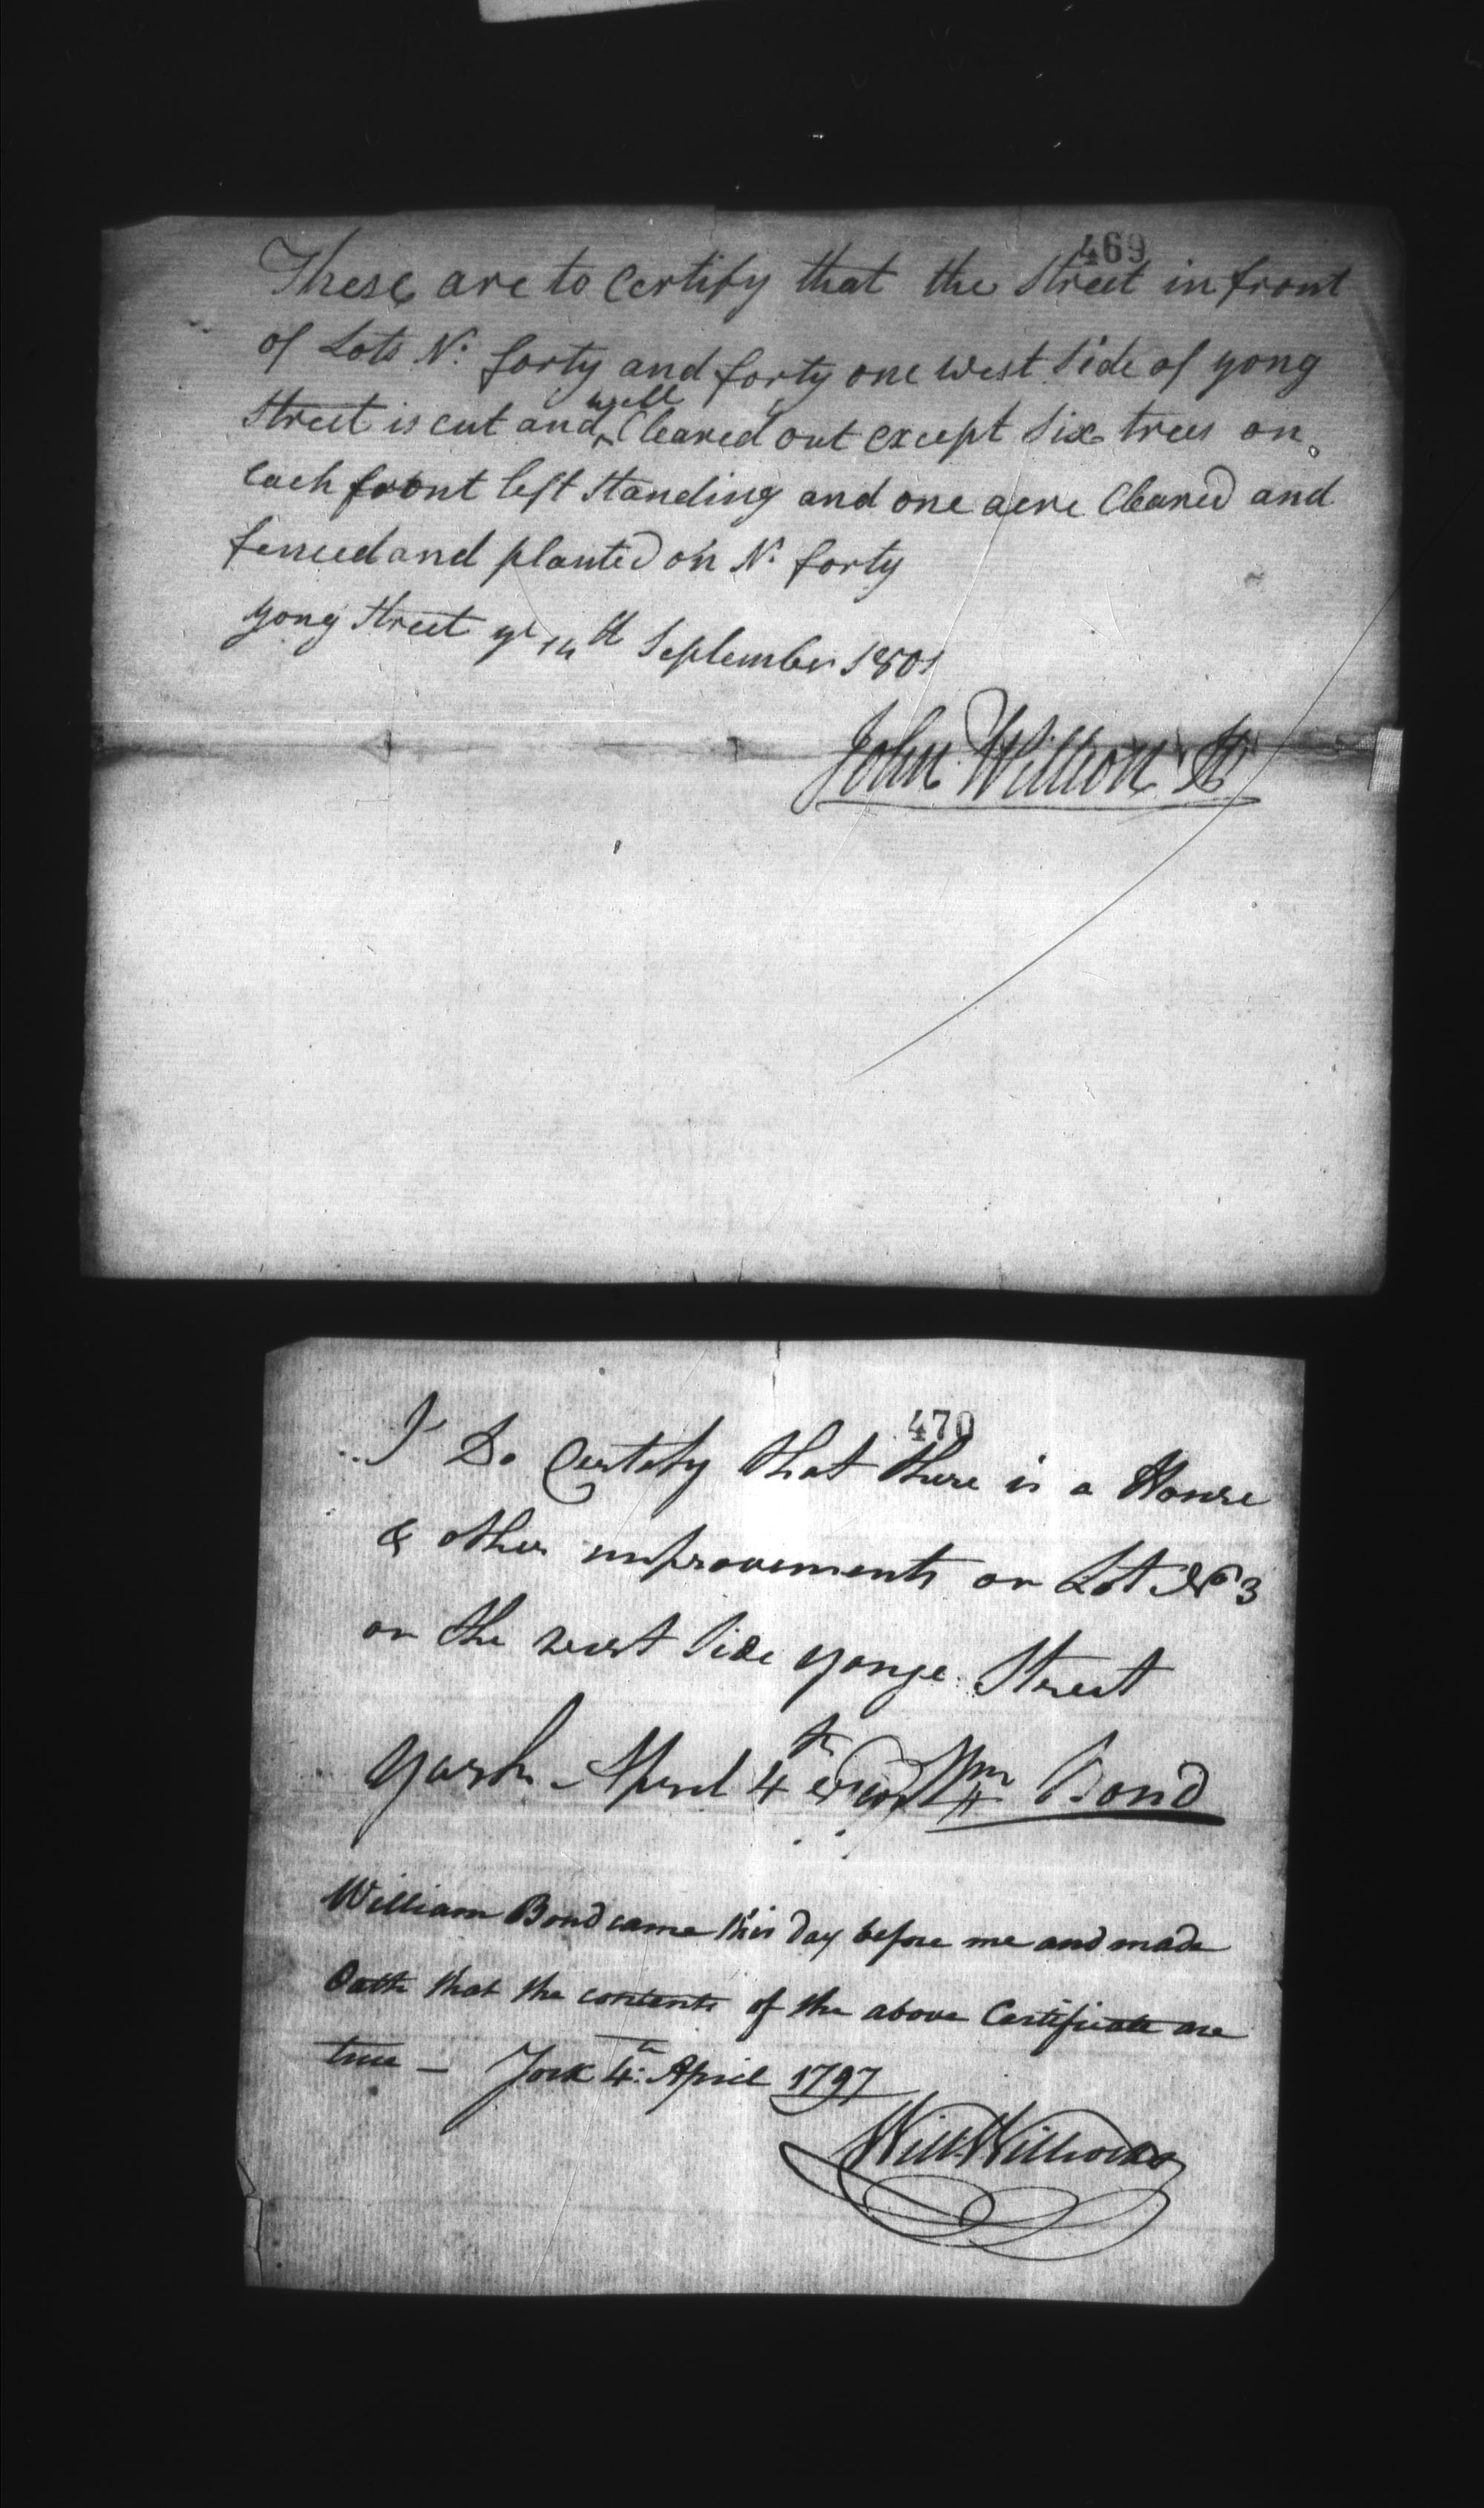 469
These are to Certify that the Street in front
of Lots No. forty and forty one west Side of yong
Street is cut and well Cleared out except Six trees on
each front left Standing and one acre Cleared and
fenced and planted on No. forty
yong Street ye 14th September 1801
John Willson
470
I Do Certefy that there is a House
& other improvements on Lot No 3
on the west Side yonge Street
york April 4th Wm Bond
William Bond came this day before me and made
Oath that the contents of the above Certificate are
true – York 4th April 1797
Will: Willcocks